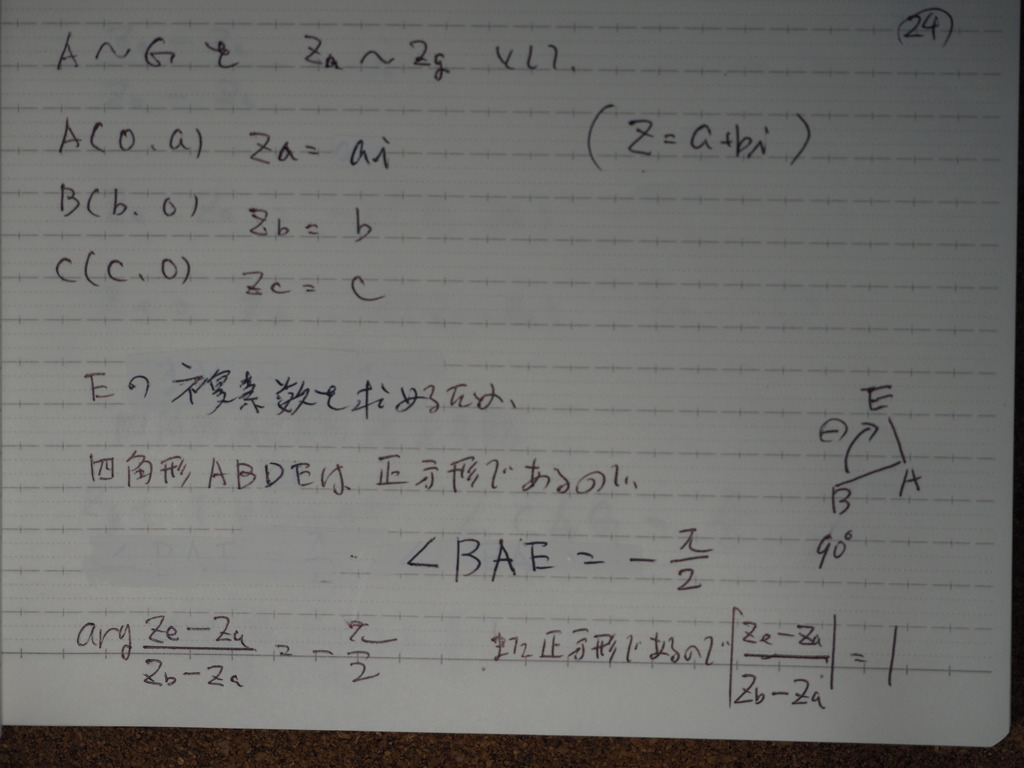 (24)
A～Gを Za～Zg として、
A(0、a) Za = ai (Z = a+bi)
B(b、0) Zb = b
C(c、0) Zc = c
Eの複素数を求めるため、
四角形ABDEは、正方形であるので、
∠BAE = - π/2
E
θ
B A
90°
arg (Ze-Za)/(Zb-Za) = - π/2 また正方形であるので |(Ze-Za)/(Zb-Za)| = 1